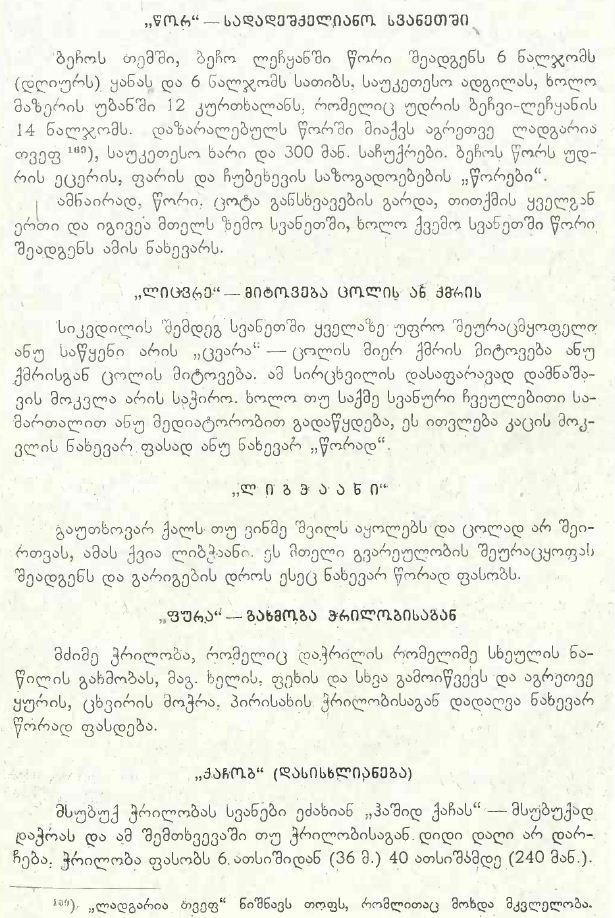 „წორ“ — სადადეშქელიანო სვანეთში
ბეჩოს თემში, ბეჩო ლეჩყანში წორი შეადგენს 6 ნალჯომს
(დღიურს) ყანას და 6 ნალჯომს სათიბს, საუკეთესო ადგილას, ხოლო
მაზერის უბანში 12 კურთხალანს, რომელიც უდრის ბეჩვი-ლეჩყანის
14 ნალჯომს. დაზარალებულს წორში მიაქვს აგრეთვე ლადგარია
თვეფ ¹⁶⁹), საუკეთესო ხარი და 300 მან. საჩუქრები. ბეჩოს წორს უდ-
რის ეცერის, ფარის და ჩუბეხევის საზოგადოებების „წორები“.
ამნაირად, წორი, ცოტა განსხვავების გარდა, თითქმის ყველგან
ერთი და იგივეა მთელს ზემო სვანეთში, ხოლო ქვემო სვანეთში წორი
შეადგენს ამის ნახევარს.
„ლიცვრე“ — მიტოვება ცოლის ან ქმრის
სიკვდილის შემდეგ სვანეთში ყველაზე უფრო შეურაცმყოფელი
ანუ საწყენი არის „ცვარა“ — ცოლის მიერ ქმრის მიტოვება ანუ
ქმრისგან ცოლის მიტოვება. ამ სირცხვილის დასაფარავად დამნაშა-
ვის მოკვლა არის საჭირო. ხოლო თუ საქმე სვანური ჩვეულებითი სა-
მართალით ანუ მედიატორობით გადაწყდება, ეს ითვლება კაცის მოკ-
ვლის ნახევარ ფასად ანუ ნახევარ „წორად“.
„ლიბჰაანი“
გაუთხოვარ ქალს თუ ვინმე შვილს აყოლებს და ცოლად არ შეი-
რთვას, ამას ქვია ლიბჰაანი. ეს მთელი გვარეულობის შეურაცყოფას
შეადგენს და გარიგების დროს ესეც ნახევარ წორად ფასობს.
„ფურა“ — გახმობა ჭრილობისაგან
მძიმე ჭრილობა, რომელიც დაჭრილის რომელიმე სხეულის ნა-
წილის გახმობას, მაგ. ხელის, ფეხის და სხვა გამოიწვევს და აგრეთვე
ყურის, ცხვირის მოჭრა, პირისახის ჭრილობისაგან დადაღვა ნახევარ
წორად ფასდება.
„ქაჩობ“ (დასისხლიანება)
მსუბუქ ჭრილობას სვანები ეძახიან „ჰაშიდ ქაჩას“ — მსუბუქად
დაჭრას და ამ შემთხვევაში თუ ჭრილობისაგან დიდი დაღი არ დარ-
ჩება, ჭრილობა ფასობს 6 ათსიშიდან (36 მ.) 40 ათსიშამდე (240 მან.).
¹⁶⁹). „ლადგარია თვეფ“ ნიშნავს თოფს, რომლითაც მოხდა მკვლელობა.